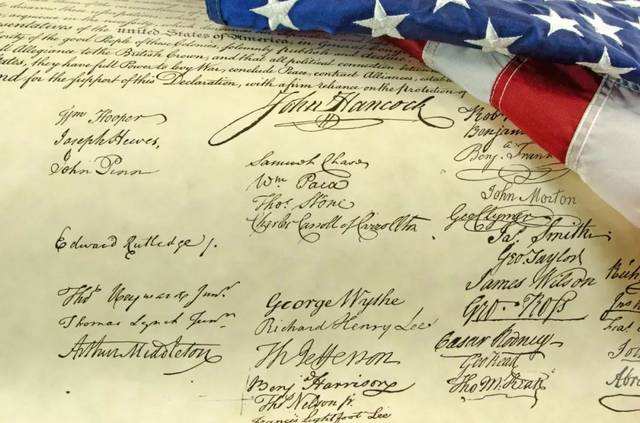 united States of
all Allegiance to the British Crown, and that all political connection
they have full Power to levy War, conclude Peace, contract Alliances,
And for the support of this Declaration, with a firm reliance on the protection of
John Hancock
Wm Hooper
Joseph Hewes,
John Penn
Edward Rutledge /.
Thos Heyward Junr.
Thomas Lynch Junr.
Arthur Middleton
Samuel Chase
Wm. Paca
Thos. Stone
Charles Carroll of Carrollton
George Wythe
Richard Henry Lee
Th Jefferson
Benj Harrison
Thos Nelson jr.
Francis Lightfoot Lee
Rob
Benjamin
Benj. Frank
John Morton
Geo Clymer
Jas. Smith
Geo Taylor
James Wilson
Geo. Ross
Caesar Rodney
Geo Read
Tho M:Kean
Abra